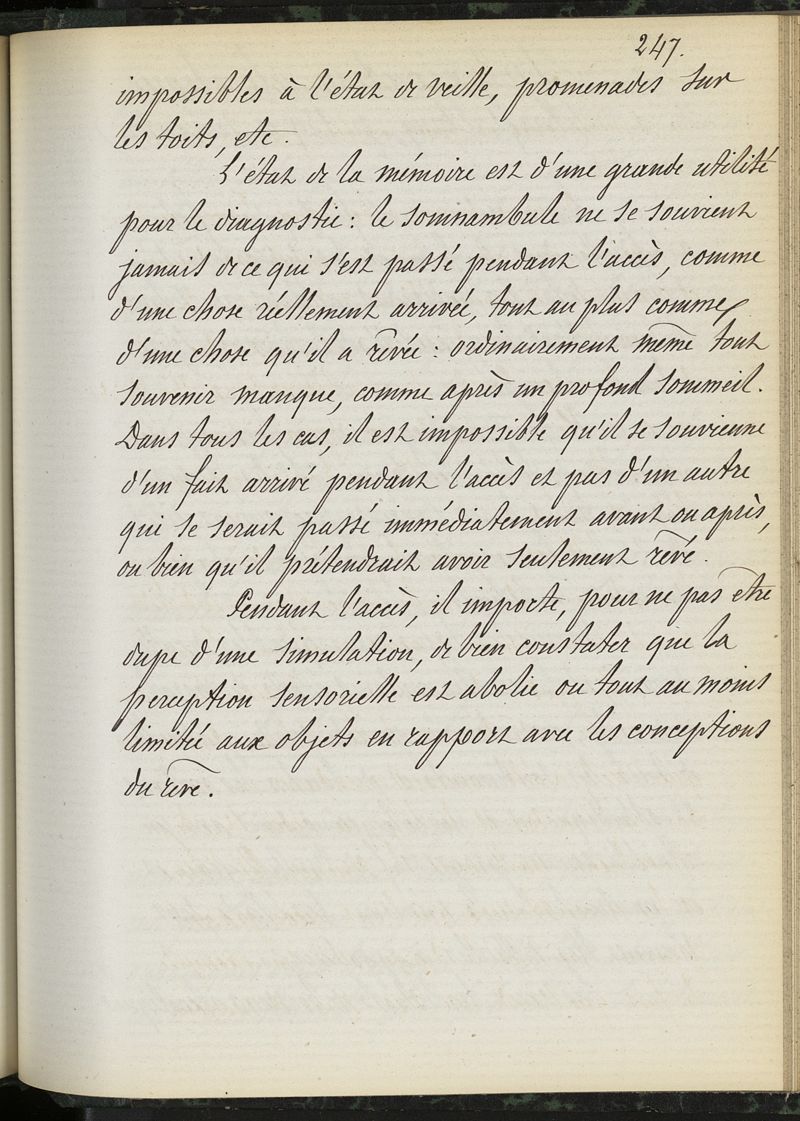 247.
impossibles à l'état de veille, promenades sur
les toits, etc.
L'état de la mémoire est d'une grande utilité
pour le diagnostic : le somnambule ne se souvient
jamais de ce qui s'est passé pendant l'accès, comme
d'une chose réellement arrivée, tout au plus comme
d'une chose qu'il a rêvée : ordinairement même tout
souvenir manque, comme après un profond sommeil.
Dans tous les cas, il est impossible qu'il se souvienne
d'un fait arrivé pendant l'accès et pas d'un autre
qui se serait passé immédiatement avant ou après,
ou bien qu'il prétendrait avoir seulement rêvé.
Pendant l'accès, il importe, pour ne pas être
dupe d'une simulation, de bien constater que la
perception sensorielle est abolie ou tout au moins
limitée aux objets en rapport avec les conceptions
du rêve.